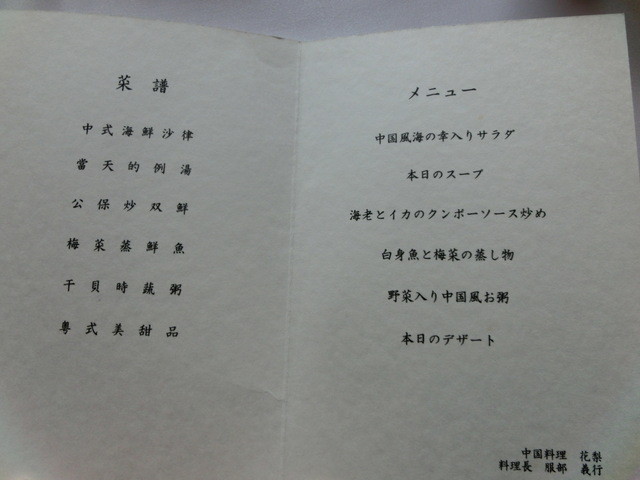 菜譜
中式海鮮沙律
當天的例湯
公保炒双鮮
梅菜蒸鮮魚
干貝時蔬粥
粤式美甜品
メニュー
中国風海の幸入りサラダ
本日のスープ
海老とイカのクンボーソース炒め
白身魚と梅菜の蒸し物
野菜入り中国風お粥
本日のデザート
中国料理 花梨
料理長 服部 義行